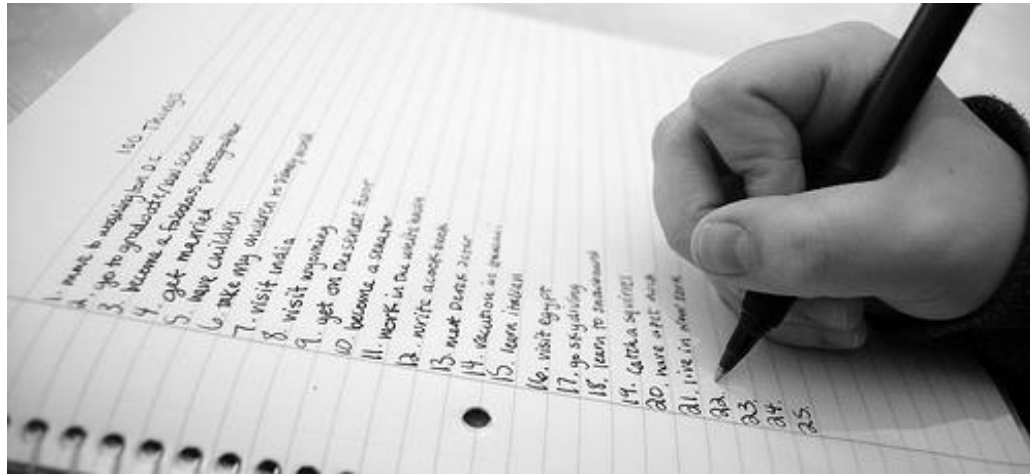 100 Things
1. move to washington D.C.
2. go to graduate/law school
3. become a fabulous photographer
4. get married
5. have children
6. take my children to disney world
7. visit india
8. visit wyoming
9. get on the senate floor
10. become a senator
11. work in the white house
12. write a cook book
13. meet Derek Jeter
14. vacation in
15. learn italian
16. visit egypt
17. go skydiving
18. learn to snowboard
19. catch a squirrel
20. have a pet
21. live in new york
22.
23.
24.
25.